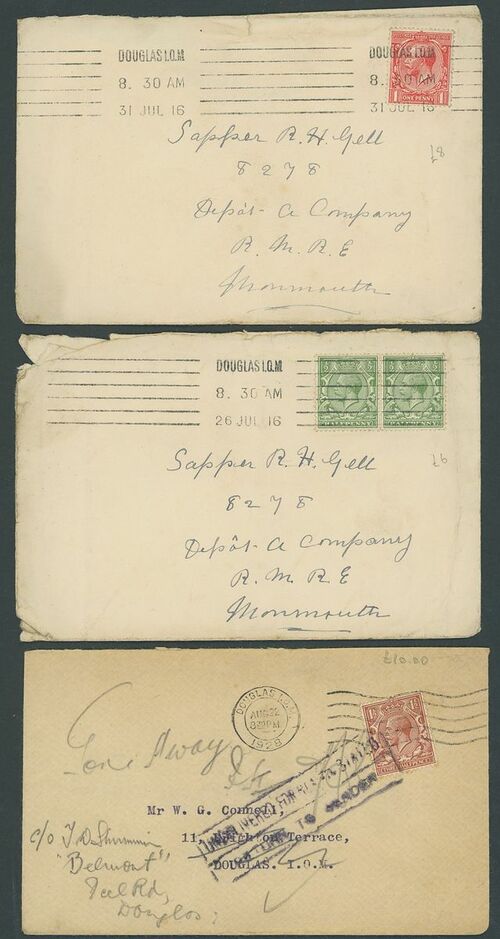 DOUGLAS I.O.M
8. 30 AM
31 JUL 16
DOUGLAS I.O.M
8. 30 AM
31 JUL 16
ONE PENNY
Sapper R. H. Gell
8278
Depôt- A Company
R. M. R. E
Monmouth
£8
DOUGLAS I.O.M
8. 30 AM
26 JUL 16
HALFPENNY
HALFPENNY
Sapper R. H. Gell
8278
Depôt- A Company
R. M. R. E
Monmouth
£6
£10.00
DOUGLAS I.O.M.
AUG 22
1928
Gone Away
UNDELIVERED FOR REASON STATED
RETURN TO SENDER
Mr W. G. Connell,
11, Terrace,
DOUGLAS. I.O.M.
c/o
"Belmont"
Peel Rd,
Douglas